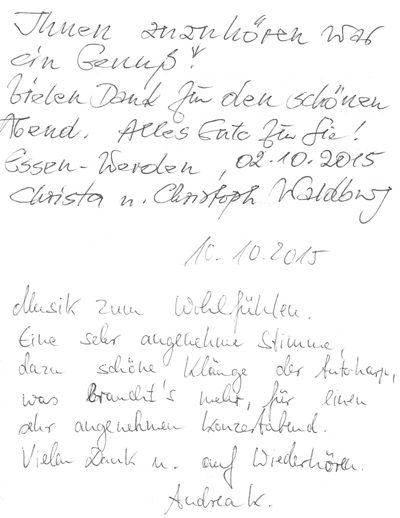 Ihnen zuzuhören war
ein Genuß!
Vielen Dank für den schönen
Abend. Alles Gute für Sie!
Essen-Werden, 02.10.2015
Christa u. Christoph
10.10.2015
Musik zum Wohlfühlen.
Eine sehr angenehme Stimme,
dazu schöne Klänge der Autoharp,
was braucht's mehr, für einen
sehr angenehmen Konzertabend.
Vielen Dank u. auf Wiederhören.
Andrea K.